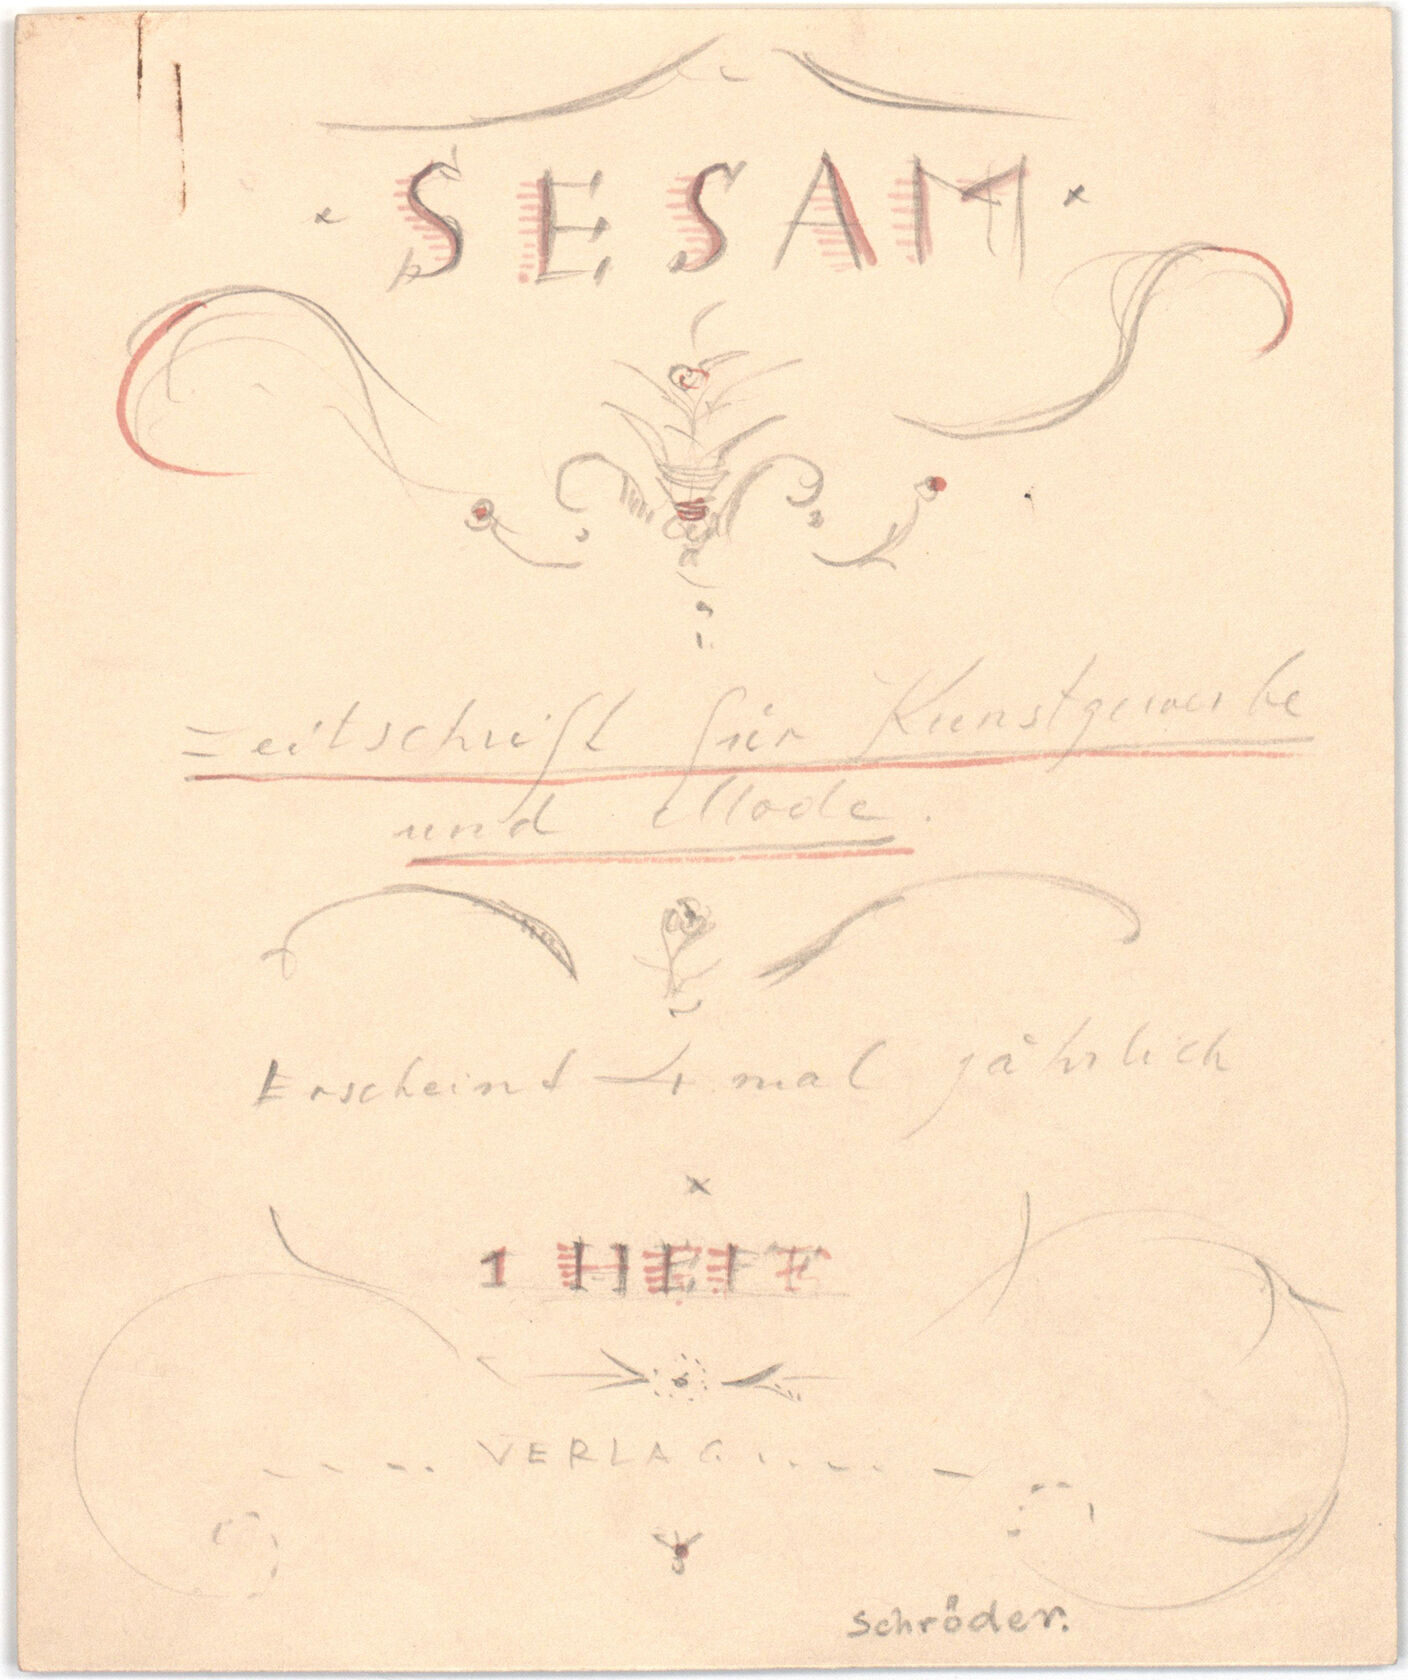 SESAM
Zeitschrift für Kunstgewerbe
und Mode.
Erscheint 4 mal jährlich
1 HEFT
VERLAG
Schröder.